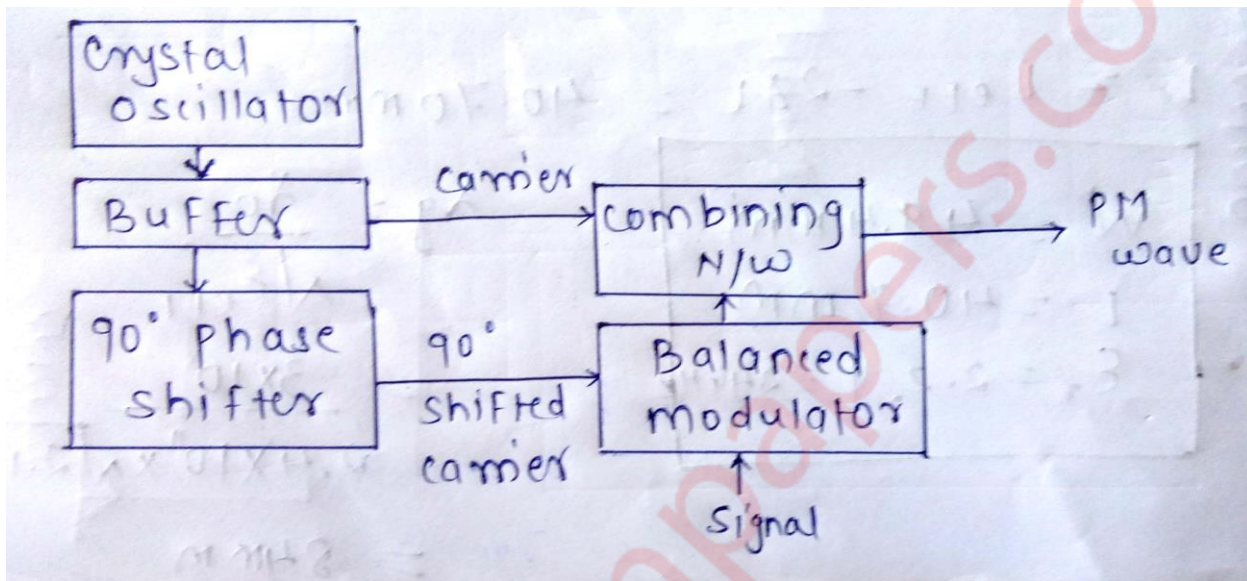 Crystal
oscillator
Buffer
carrier
combining
N/W
PM
wave
90° Phase
shifter
90°
shifted
carrier
Balanced
modulator
signal
papers.co